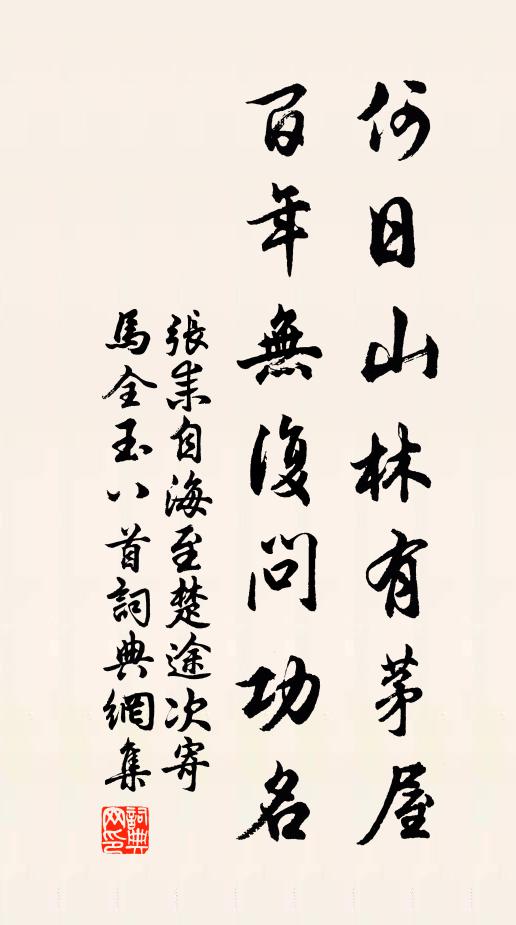 何日山林有茅屋
百年無復問功名
張耒自海至楚途次寄
馬全玉八首詞典網集
詞典网印